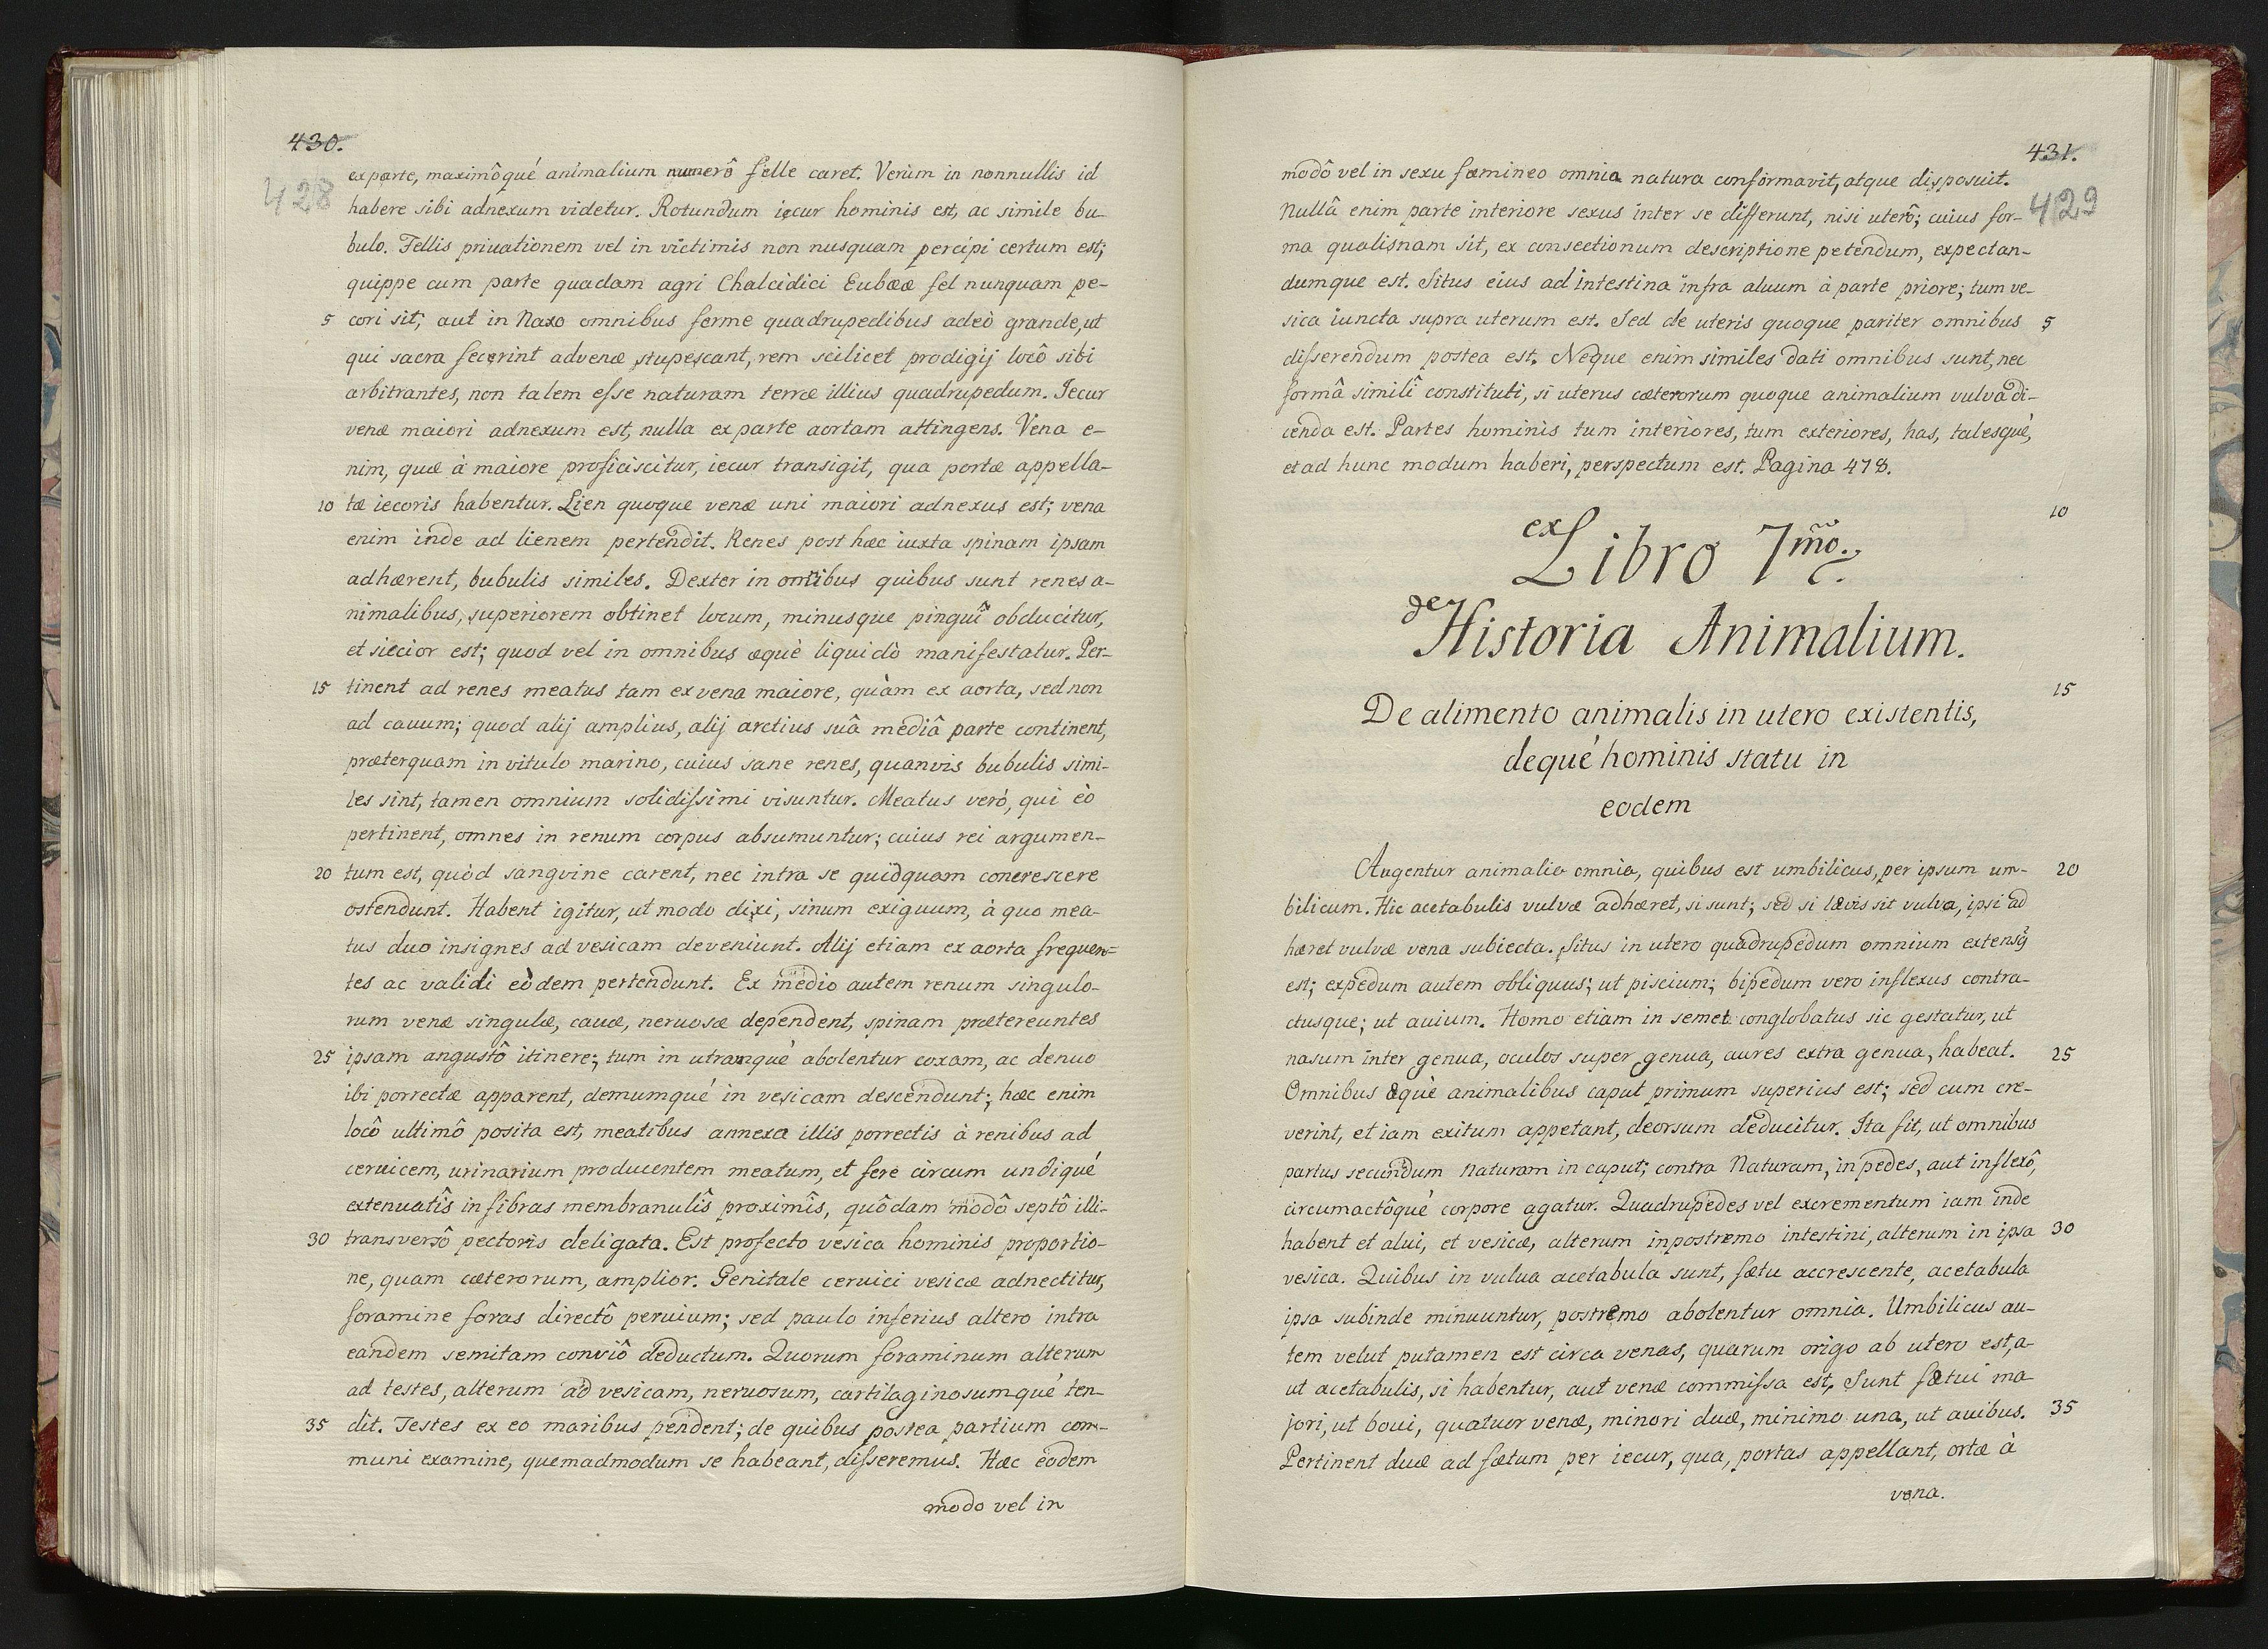 430.
428
ex parte, maximôqué animalium numerô felle caret. Verùm in nonnullis id
habere sibi adnexum videtur. Rotundum iecur hominis est, ac simile bu-
bulo. Fellis priuationem vel in victimis non nusquam percipi certum est;
quippe cum parte quadam agri Chalcidici Eubææ fel nunquam pe-
5 cori sit; aut in Naxo omnibus ferme quadrupedibus adeò grande, ut
qui sacra fecerint advenæ stupescant, rem scilicet prodigij locô sibi
arbitrantes, non talem esse naturam terræ illius quadrupedum. Iecur
venæ maiori adnexum est, nulla ex parte aortam attingens. Vena e-
nim, quæ à maiore proficiscitur, iecur transigit, qua portæ appella-
10 tæ iecoris habentur. Lien quoque venæ uni maiori adnexus est; vena
enim inde ad lienem pertendit. Renes post hæc iuxta spinam ipsam
adhærent, bubulis similes. Dexter in omibus quibus sunt renes a-
nimalibus, superiorem obtinet locum, minusque pinguî obducitur,
et siccior est; quod vel in omnibus æquè liquidò manifestatur. Per-
15 tinent ad renes meatus tam ex vena maiore, quàm ex aorta, sed non
ad cauum; quod alij amplius, alij arctius suâ mediâ parte continent,
præterquam in vitulo marino, cuius sane renes, quanvis bubulis simi-
les sint, tamen omnium solidissimi visuntur. Meatus verò, qui èo
pertinent, omnes in renum corpus absumuntur; cuius rei argumen-
20 tum est, quòd sangvine carent, nec intra se quidquam concrescere
ostendunt. Habent igitur, ut modo dixi, sinum exiguum, à quo mea-
tus duo insignes ad vesicam deveniunt. Alij etiam ex aorta frequen-
tes ac validi eòdem pertendunt. Ex medio autem renum singulo-
rum venæ singulæ, cauæ, neruosæ dependent, spinam prætereuntes
25 ipsam angustô itinere; tum in utramqué abolentur coxam, ac denuo
ibi porrectæ apparent, demumqué in vesicam descendunt; hæc enim
locô ultimô posita est, meatibus annexa illis porrectis à renibus ad
ceruicem, urinarium producentem meatum, et fere circum undiqué
extenuatîs in fibras membranulîs proximîs, quôdam modô septô illi-
30 transversô pectoris deligata. Est profecto vesica hominis proportio-
ne, quam cæterorum, amplior. Genitale ceruici vesicæ adnectitur,
foramine foras directô peruium; sed paulo inferius altero intra
eandem semitam conviô deductum. Quorum foraminum alterum
ad testes, alterum ad vesicam, neruosum, cartilaginosumqué ten-
35 dit. Testes ex eo maribus pendent; de quibus postea partium com-
muni examine, quemadmodum se habeant, disseremus. Hæc eodem
modo vel in
431.
429
modô vel in sexu fæmineo omnia natura conformavit, atque disposuit.
Nullâ enim parte interiore sexus inter se differunt, nisi uterô; cuius for-
ma qualisnam sit, ex consectionum descriptione petendum, expectan-
dumque est. Situs eius ad intestina infra aluum à parte priore; tum ve-
sica iuncta supra uterum est. Sed de uteris quoque pariter omnibus 5
disserendum postea est. Neque enim similes dati omnibus sunt, nec
formâ similî constituti, si uterus cæterorum quoque animalium vulva di-
cenda est. Partes hominis tum interiores, tum exteriores, has, talesqué,
et ad hunc modum haberi, perspectum est. Pagina 478.
10
ex Libro 7mo.
de Historia Animalium.
15
De alimento animalis in utero existentis,
dequé hominis statu in
eodem
Augentur animalia omnia, quibus est umbilicus, per ipsum um- 20
bilicum. Hic acetabulis vulvæ adhæret, si sunt; sed si lævis sit vulva, ipsi ad
hæret vulvæ vena subiecta. Situs in utero quadrupedum omnium extensq
est; expedum autem obliquus; ut piscium; bipedum vero inflexus contra-
ctusque; ut auium. Homo etiam in semet conglobatus sic gestatur, ut
nasum inter genua, oculos super genua, aures extra genua, habeat. 25
Omnibus æquè animalibus caput primum superius est; sed cum cre-
verint, et iam exitum appetant, deorsum deducitur. Ita fit, ut omnibus
partus secundum Naturam in caput; contra Naturam, in pedes, aut inflexô,
circumactôqué corpore agatur. Quadrupedes vel excrementum iam inde
habent et alui, et vesicæ, alterum in postremo intestini, alterum in ipsa 30
vesica. Quibus in vulua acetabula sunt, fætu accrescente, acetabula
ipsa subinde minuuntur, postremo abolentur omnia. Umbilicus au-
tem velut putamen est circa venas, quarum origo ab utero est, a-
ut acetabulis, si habentur, aut venæ commissa est. Sunt fætui ma
jori, ut boui, quatuor venæ, minori duæ, minimo una, ut auibus. 35
Pertinent duæ ad fætum per iecur, qua, portas appellant, ortæ à
vena.